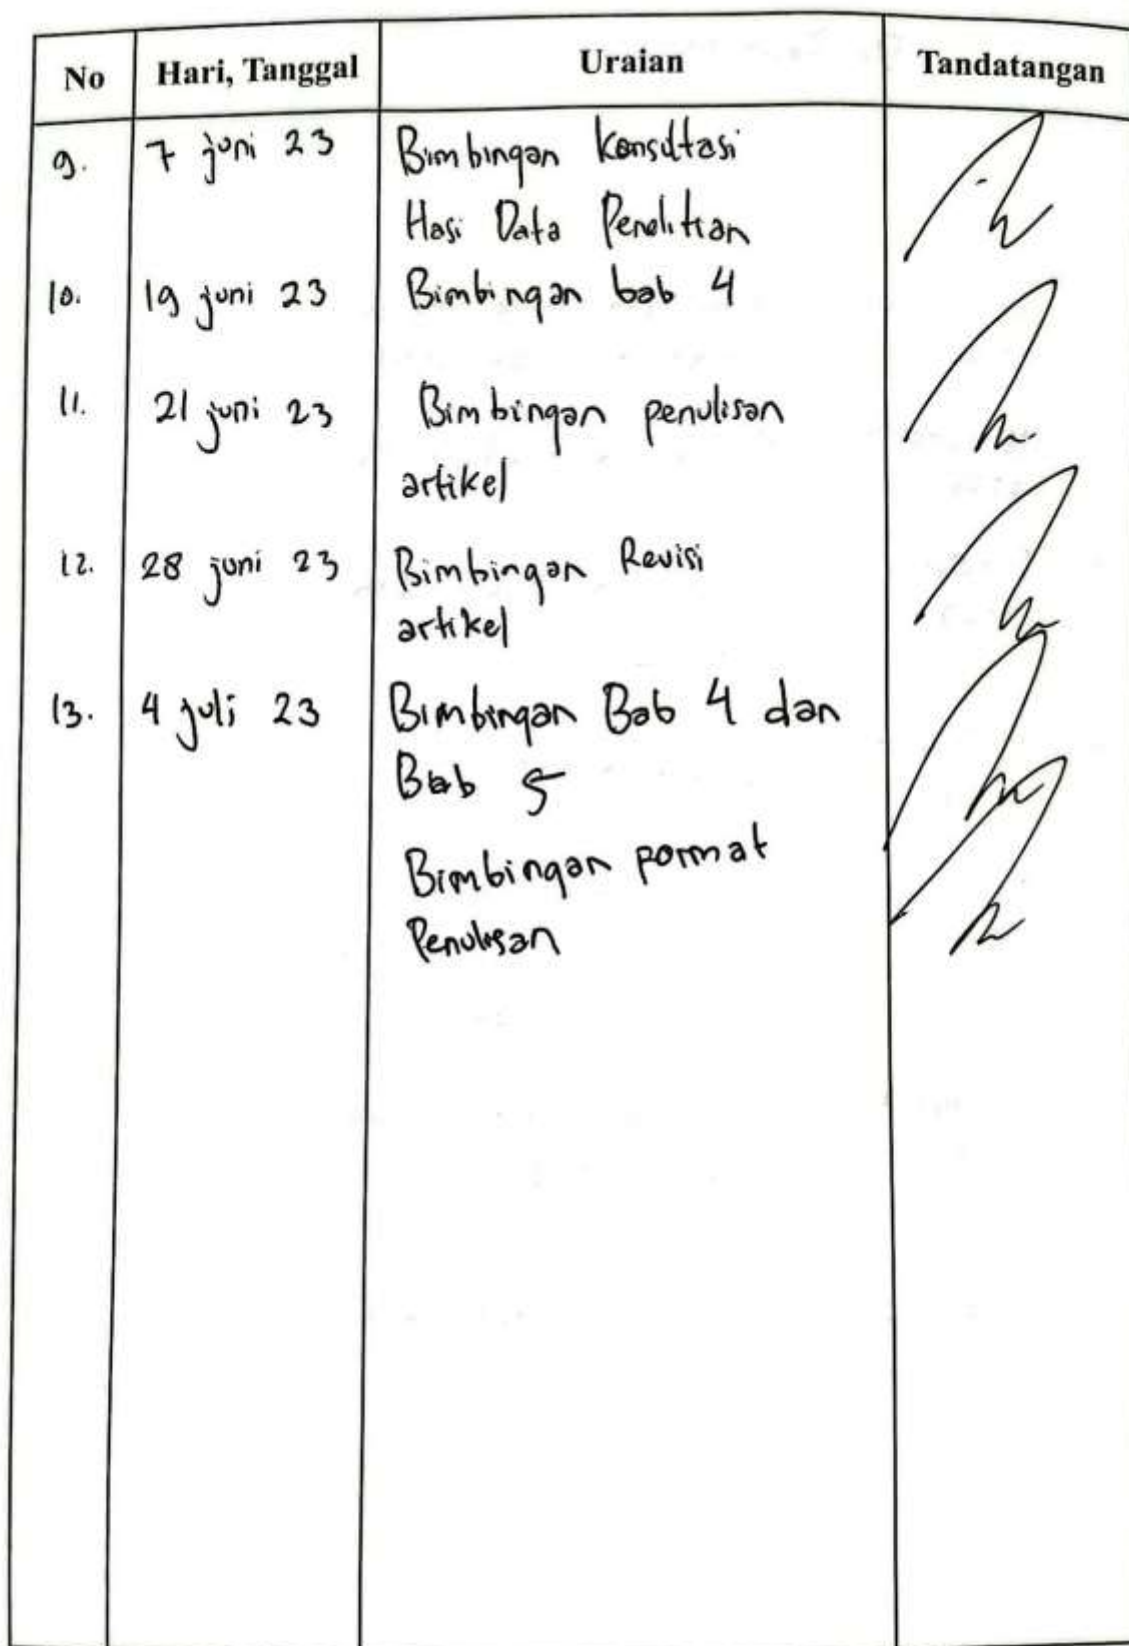 No Hari, Tanggal Uraian Tandatangan
9. 7 juni 23 Bimbingan Konsultasi
Hasi Data Penelitian
10. 19 juni 23 Bimbingan bab 4
11. 21 juni 23 Bimbingan penulisan
artikel
12. 28 juni 23 Bimbingan Revisi
artikel
13. 4 juli 23 Bimbingan Bab 4 dan
Bab 5
Bimbingan pormat
Penulisan